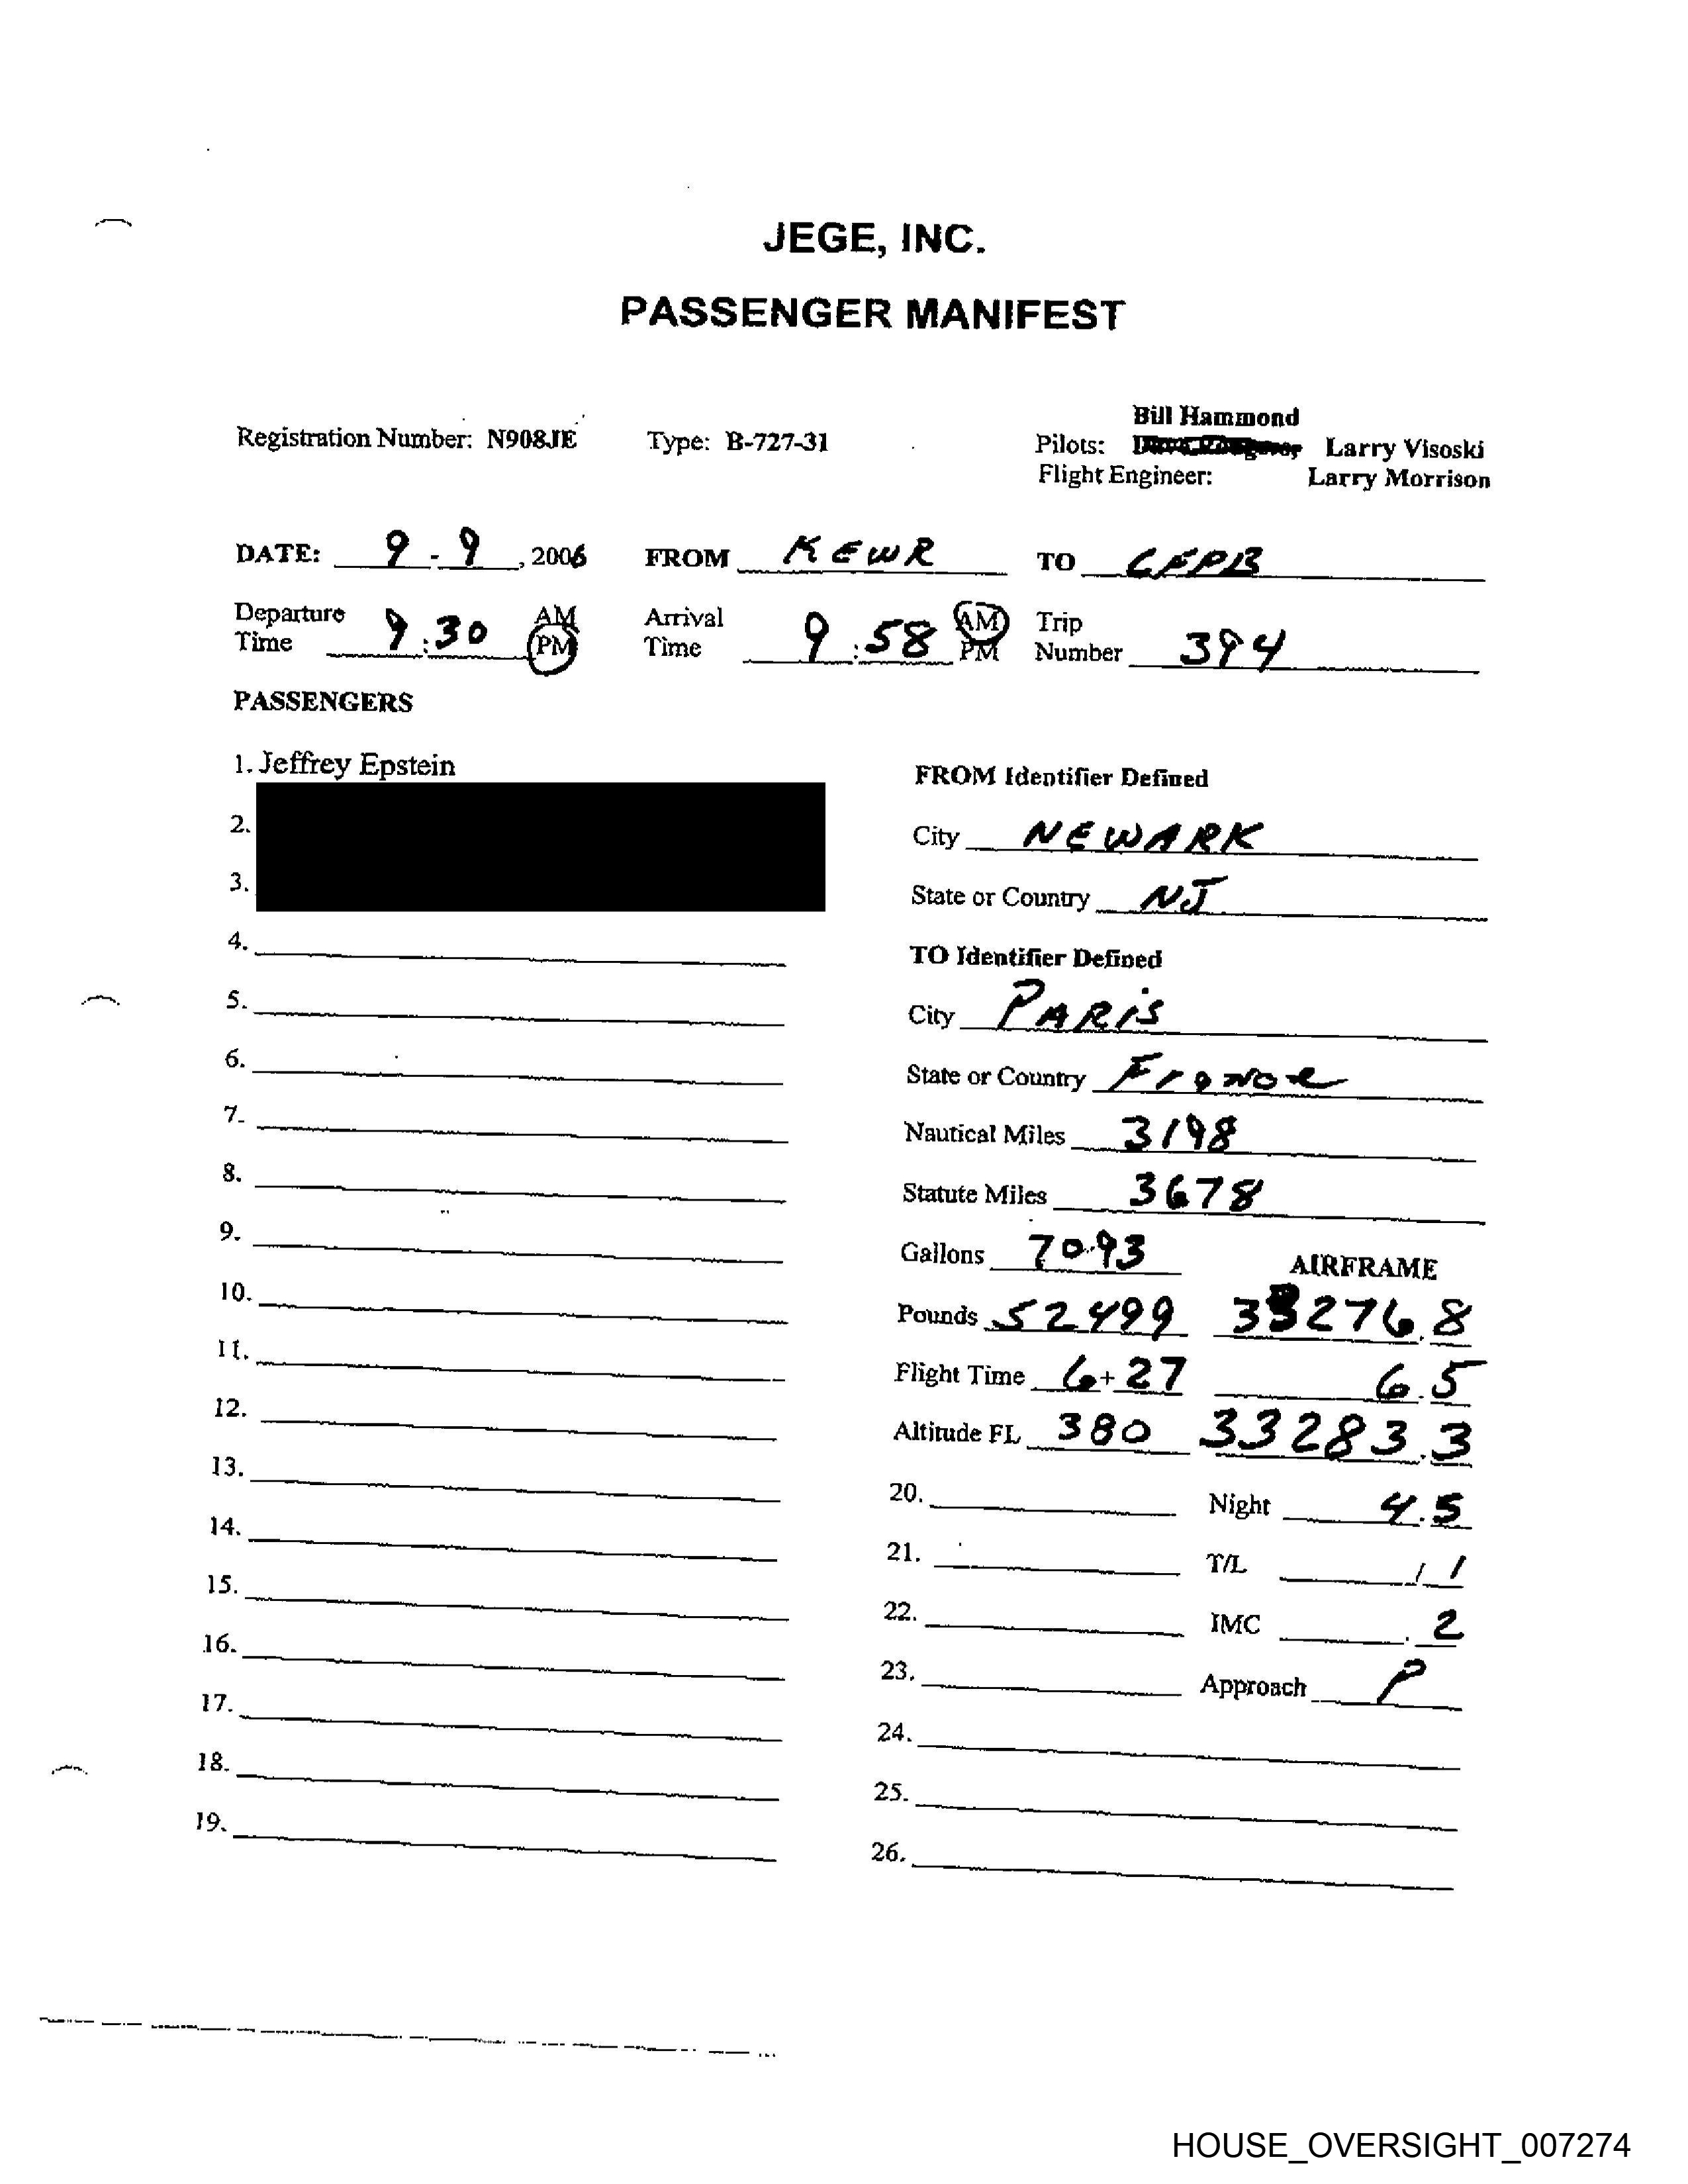 JEGE, INC.
PASSENGER MANIFEST
Bill Hammond
Registration Number: N908JE Type: B-727-31 Pilots: Larry Visoski
Flight Engineer: Larry Morrison
DATE: 9 - 9, 2006 FROM KEWR TO LFPB
Departure Time 9:30 AM PM Arrival Time 9:58 AM PM Trip Number 394
PASSENGERS
1. Jeffrey Epstein
2.
3.
4.
5.
6.
7.
8.
9.
10.
11.
12.
13.
14.
15.
16.
17.
18.
19.
FROM Identifier Defined
City NEWARK
State or Country NJ
TO Identifier Defined
City PARIS
State or Country France
Nautical Miles 3198
Statute Miles 3678
Gallons 7093 AIRFRAME
Pounds 52499 33276.8
Flight Time 6+27 6.5
Altitude FL 380 33283.3
20. Night 4.5
21. T/L 1/1
22. IMC .2
23. Approach P
24.
25.
26.
HOUSE_OVERSIGHT_007274